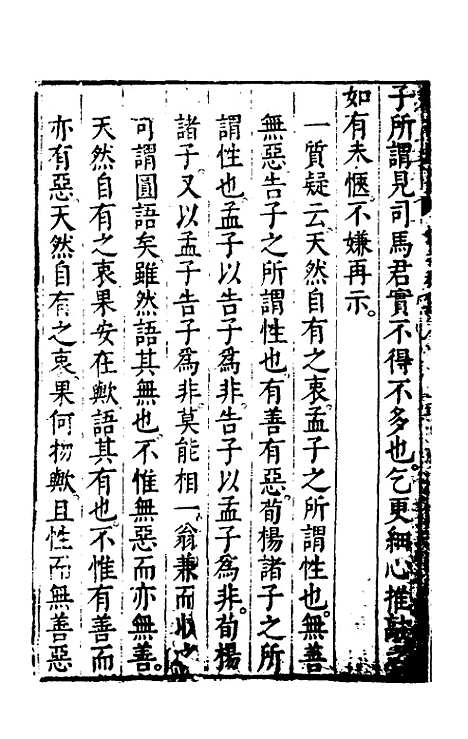 子所謂見司馬君實不得不多也乞更細心推詳之
如有未愜不嫌再示
一質疑云天然自有之衷孟子之所謂性也無善
無惡告子之所謂性也有善有惡荀楊諸子之所
謂性也孟子以告子爲非告子以孟子爲非荀楊
諸子又以孟子告子爲非莫能相一翁兼而收之
可謂圓語矣雖然語其無也不惟無惡而亦無善
天然自有之衷果安在歟語其有也不惟有善而
亦有惡天然自有之衷果何物歟且性而無善惡